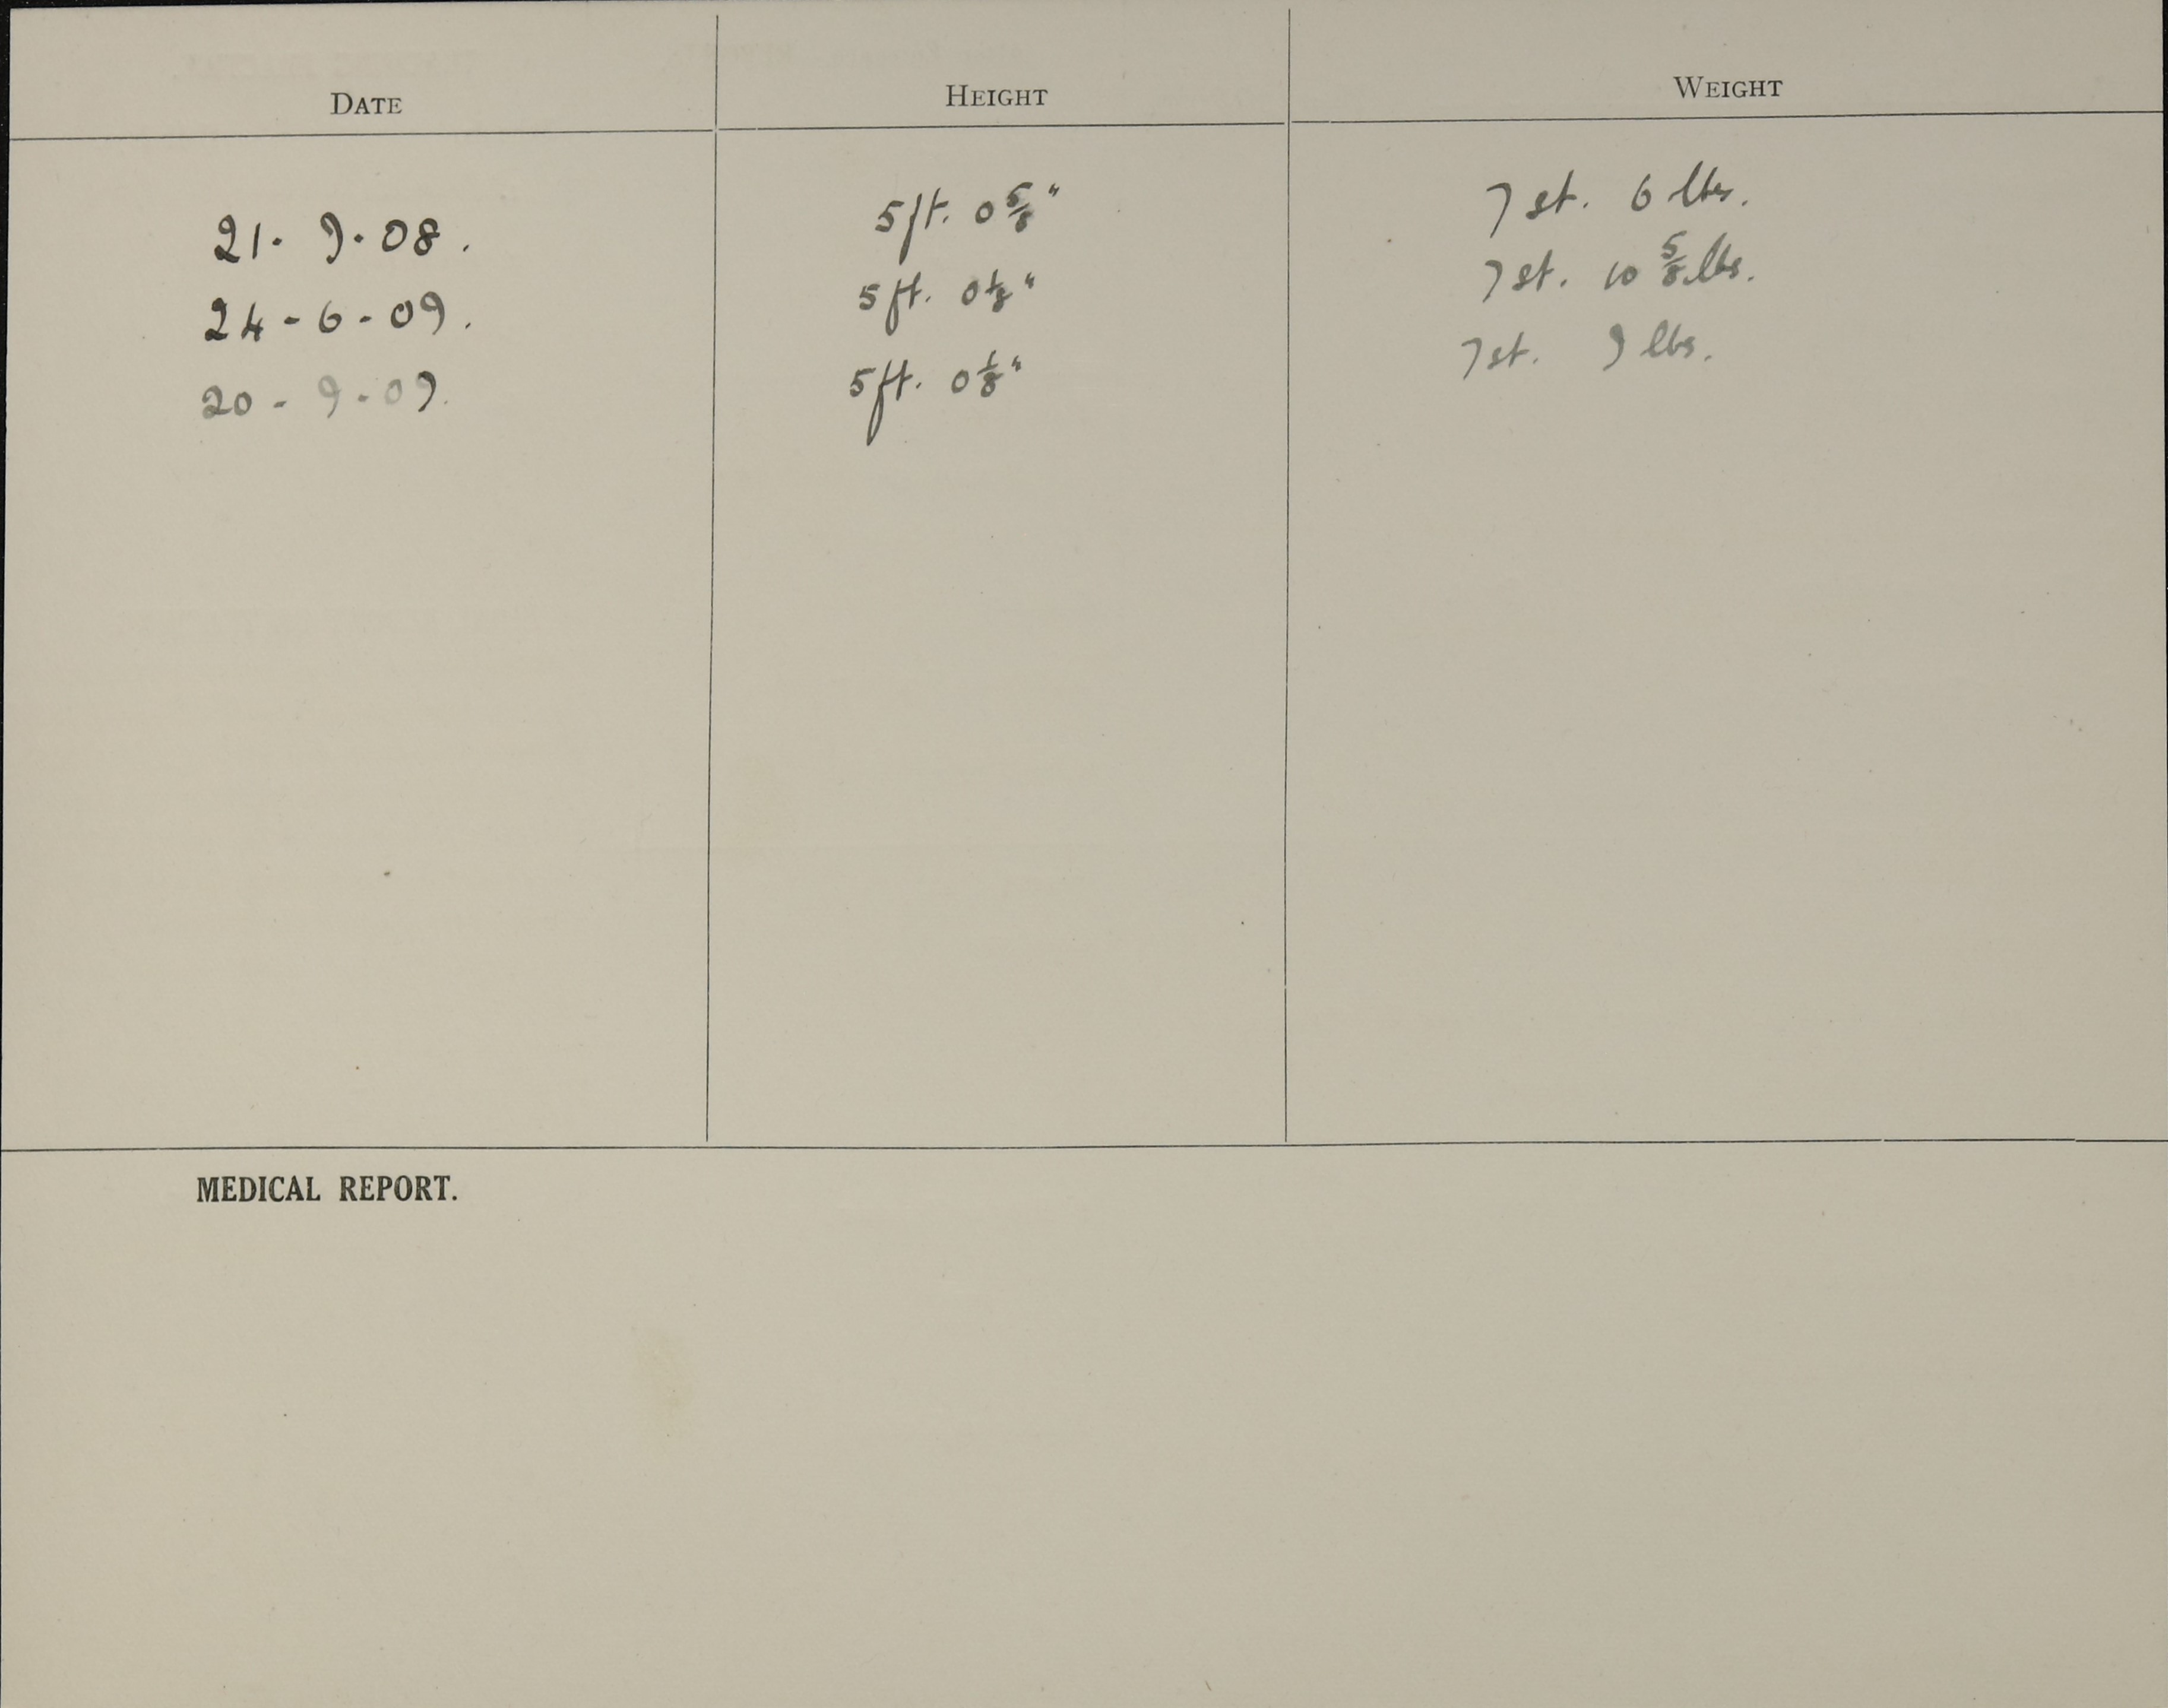 DATE HEIGHT WEIGHT
21. 9. 08. 5ft. 0 5/8" 7 st. 6 lbs.
24 - 6 - 09. 5ft. 0 1/8" 7 st. 10 5/8 lbs.
20 - 9 - 09. 5ft. 0 1/8" 7 st. 9 lbs.
MEDICAL REPORT.